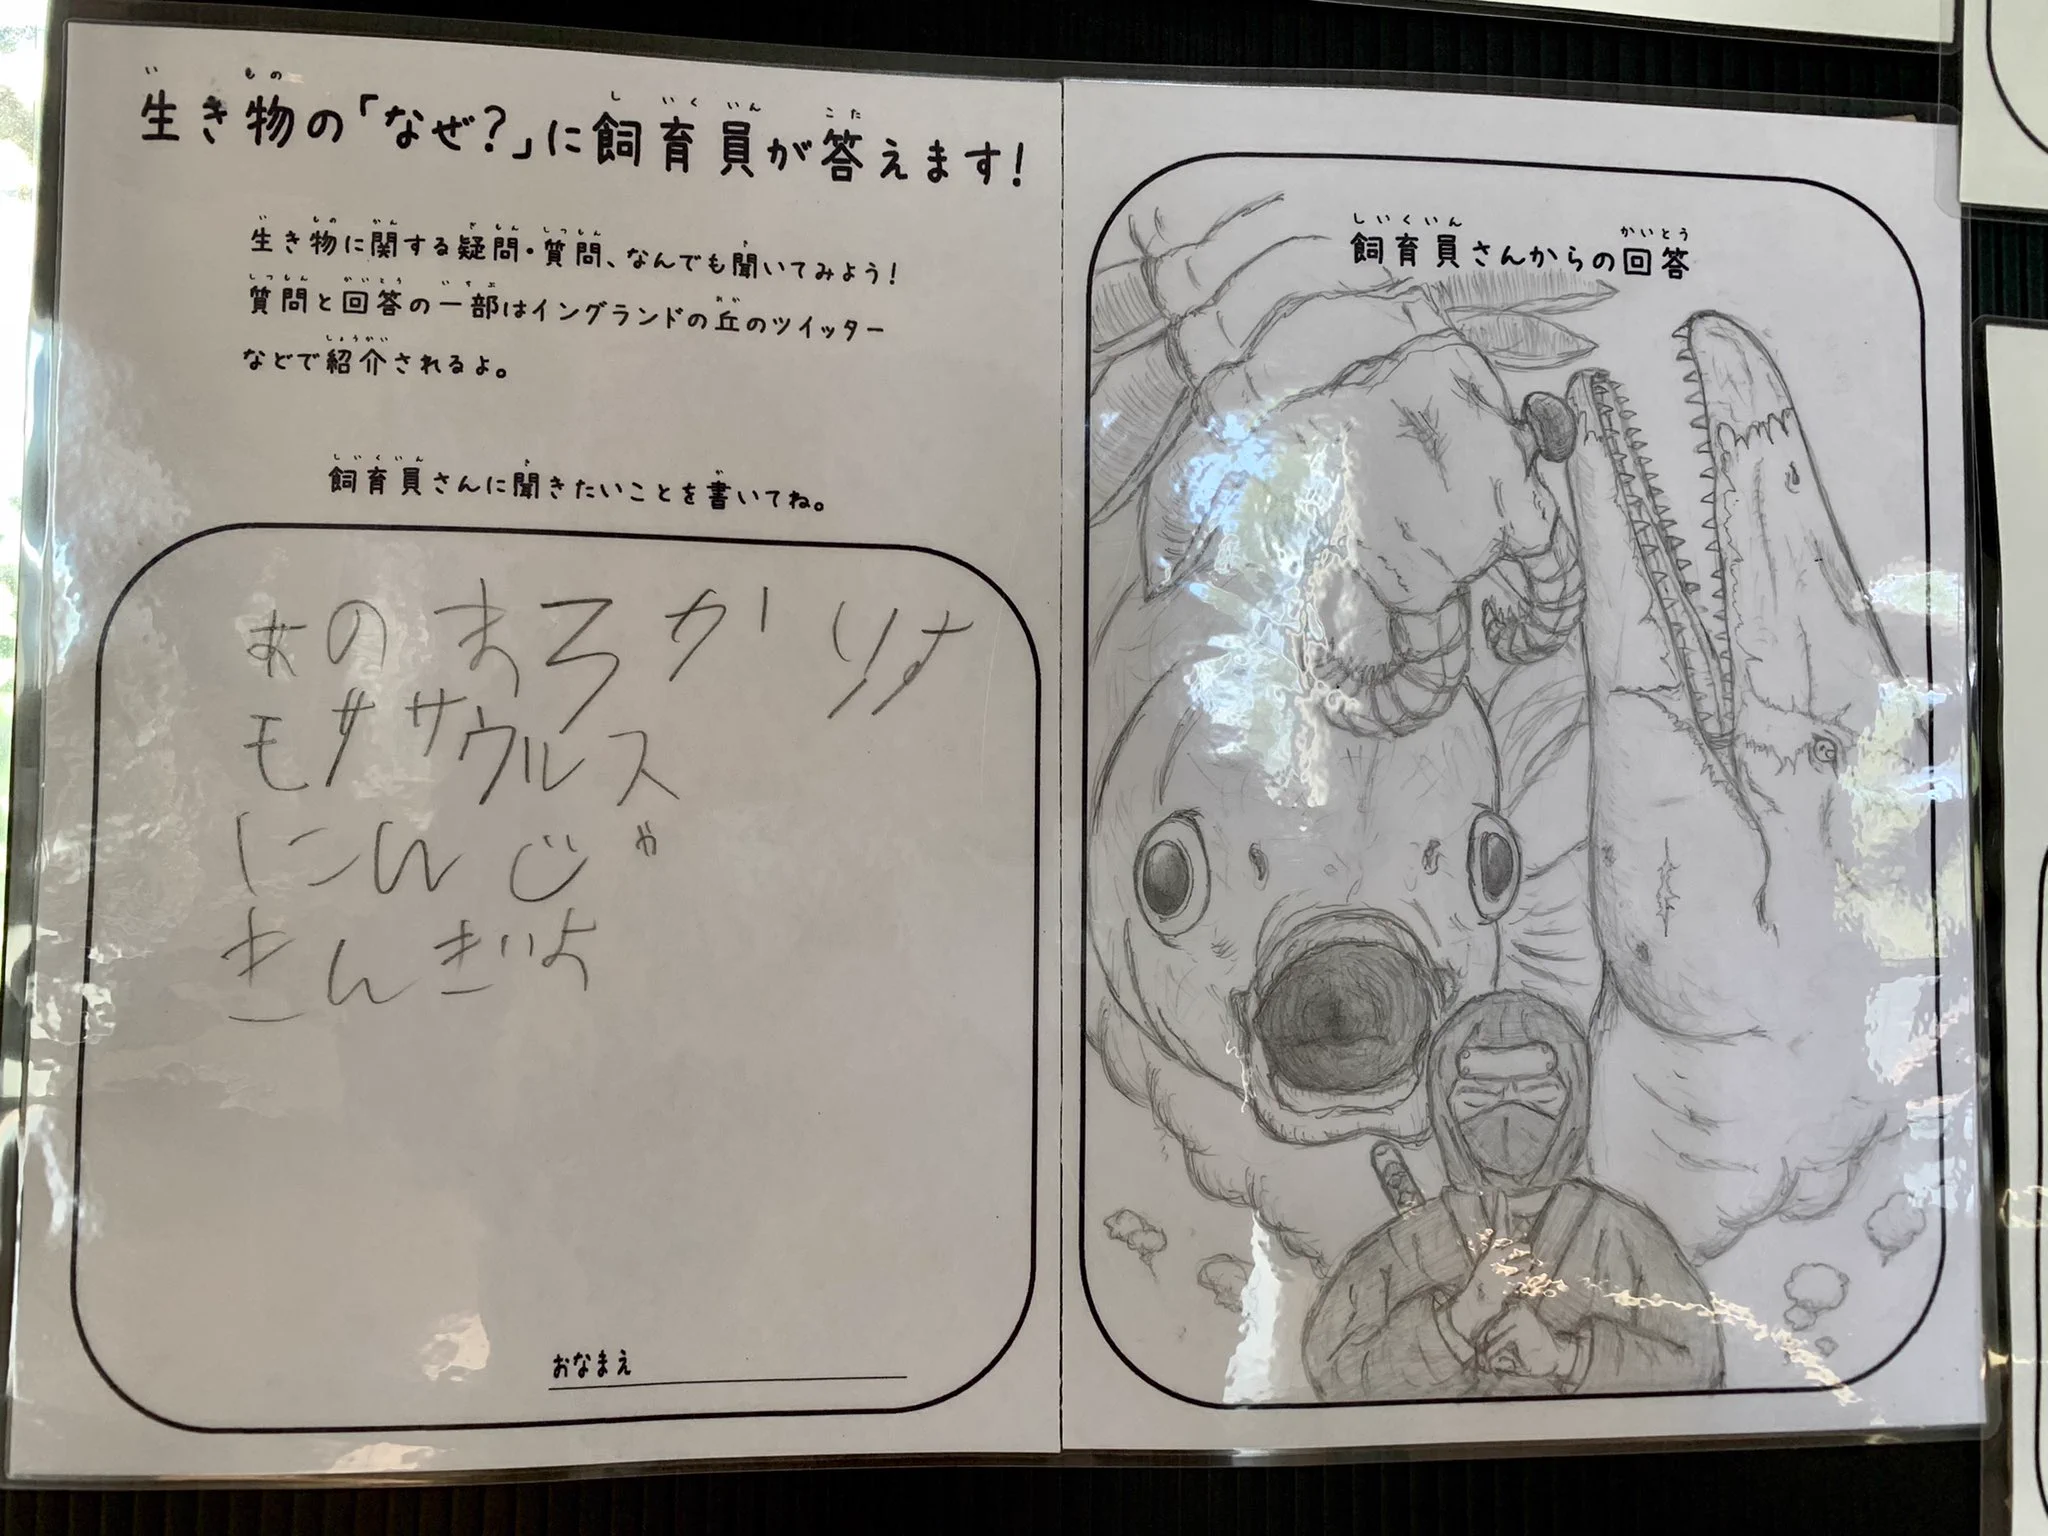 生き物の「なぜ?」に飼育員が答えます!
生き物に関する疑問・質問、なんでも聞いてみよう!
質問と回答の一部はイングランドの丘のツイッター
などで紹介されるよ。
飼育員さんに聞きたいことを書いてね。
あのまろかりす
モササウルス
にんじゃ
きんぎょ
おなまえ
飼育員さんからの回答